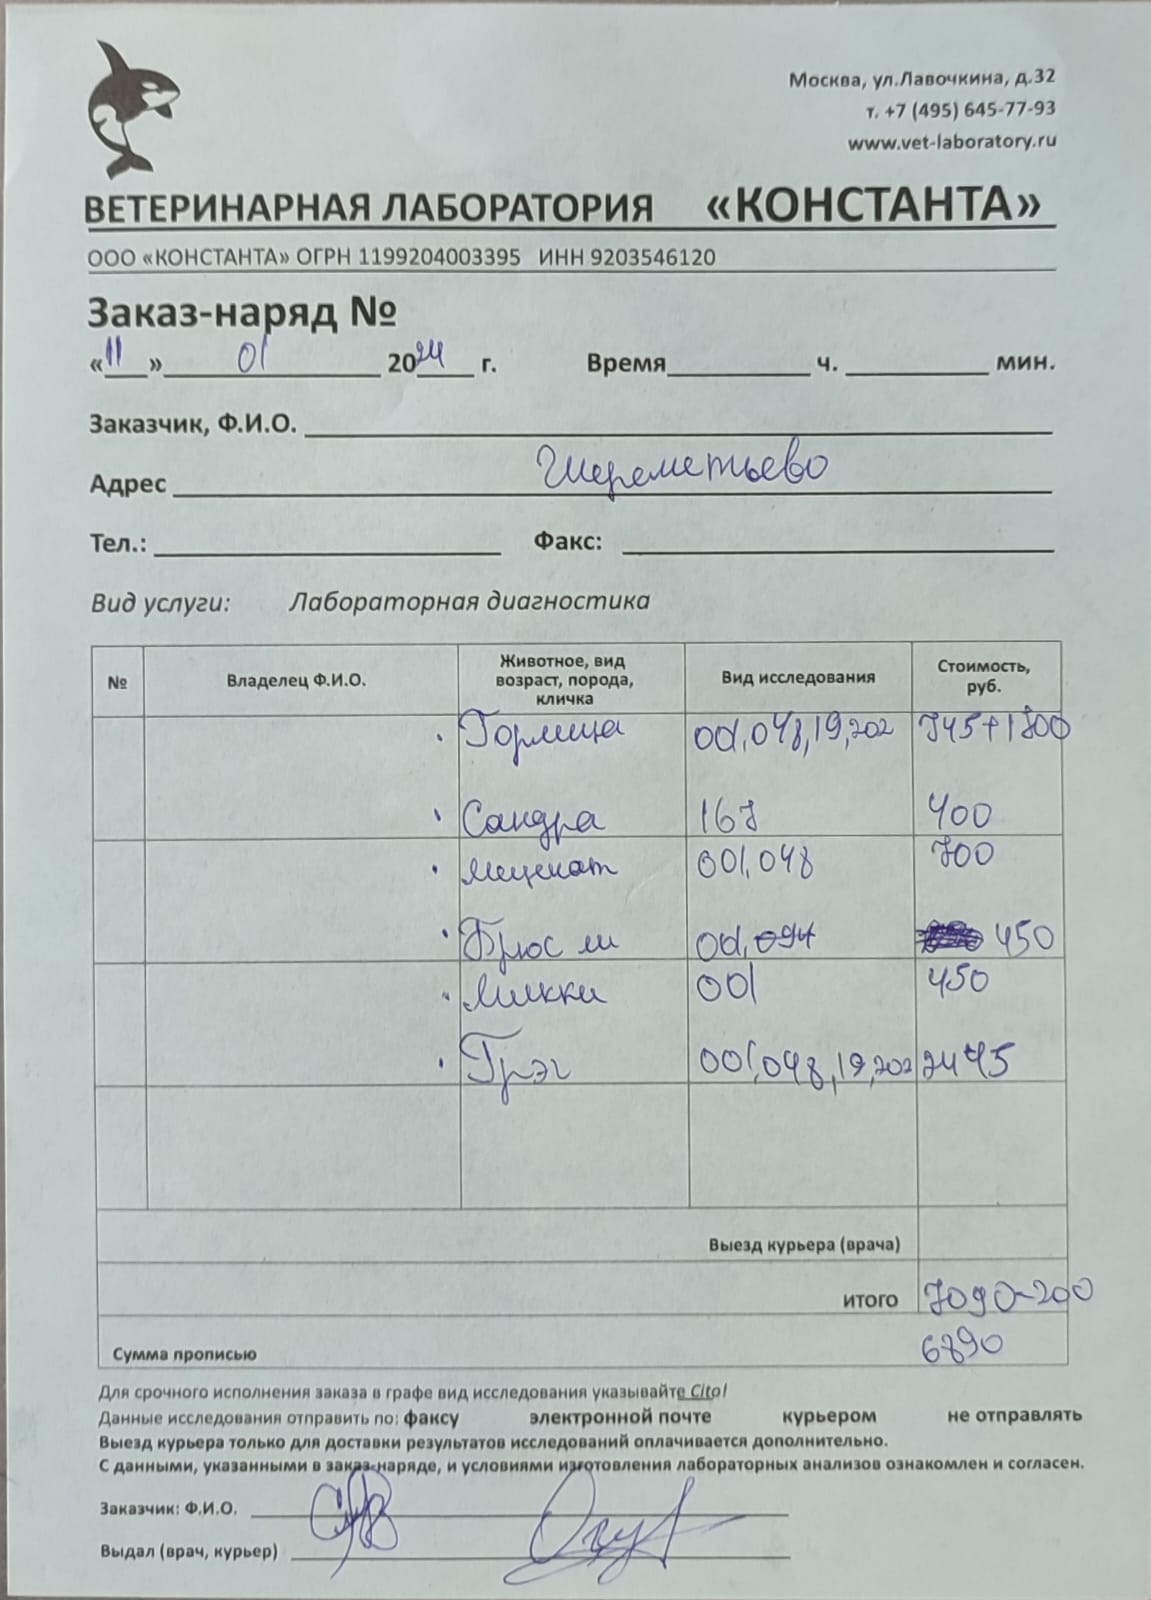 Москва, ул.Лавочкина, д.32
т. +7 (495) 645-77-93
www.vet-laboratory.ru
ВЕТЕРИНАРНАЯ ЛАБОРАТОРИЯ «КОНСТАНТА»
ООО «КОНСТАНТА» ОГРН 1199204003395 ИНН 9203546120
Заказ-наряд №
«11» 01 2024 г. Время ч. мин.
Заказчик, Ф.И.О.
Адрес Шереметьево
Тел.: Факс:
Вид услуги: Лабораторная диагностика
№ Владелец Ф.И.О. Животное, вид возраст, порода, кличка Вид исследования Стоимость, руб.
001,048,19,202 745+1800
Сандра 167 400
Меценат 001,048 700
Брюс ли 001,094 450
Микки 001 450
Грэг 001,048,19,202 2445
Выезд курьера (врача)
ИТОГО 7090-200
Сумма прописью 6890
Для срочного исполнения заказа в графе вид исследования указывайте Cito!
Данные исследования отправить по: факсу электронной почте курьером не отправлять
Выезд курьера только для доставки результатов исследований оплачивается дополнительно.
С данными, указанными в заказ-наряде, и условиями изготовления лабораторных анализов ознакомлен и согласен.
Заказчик: Ф.И.О.
Выдал (врач, курьер)